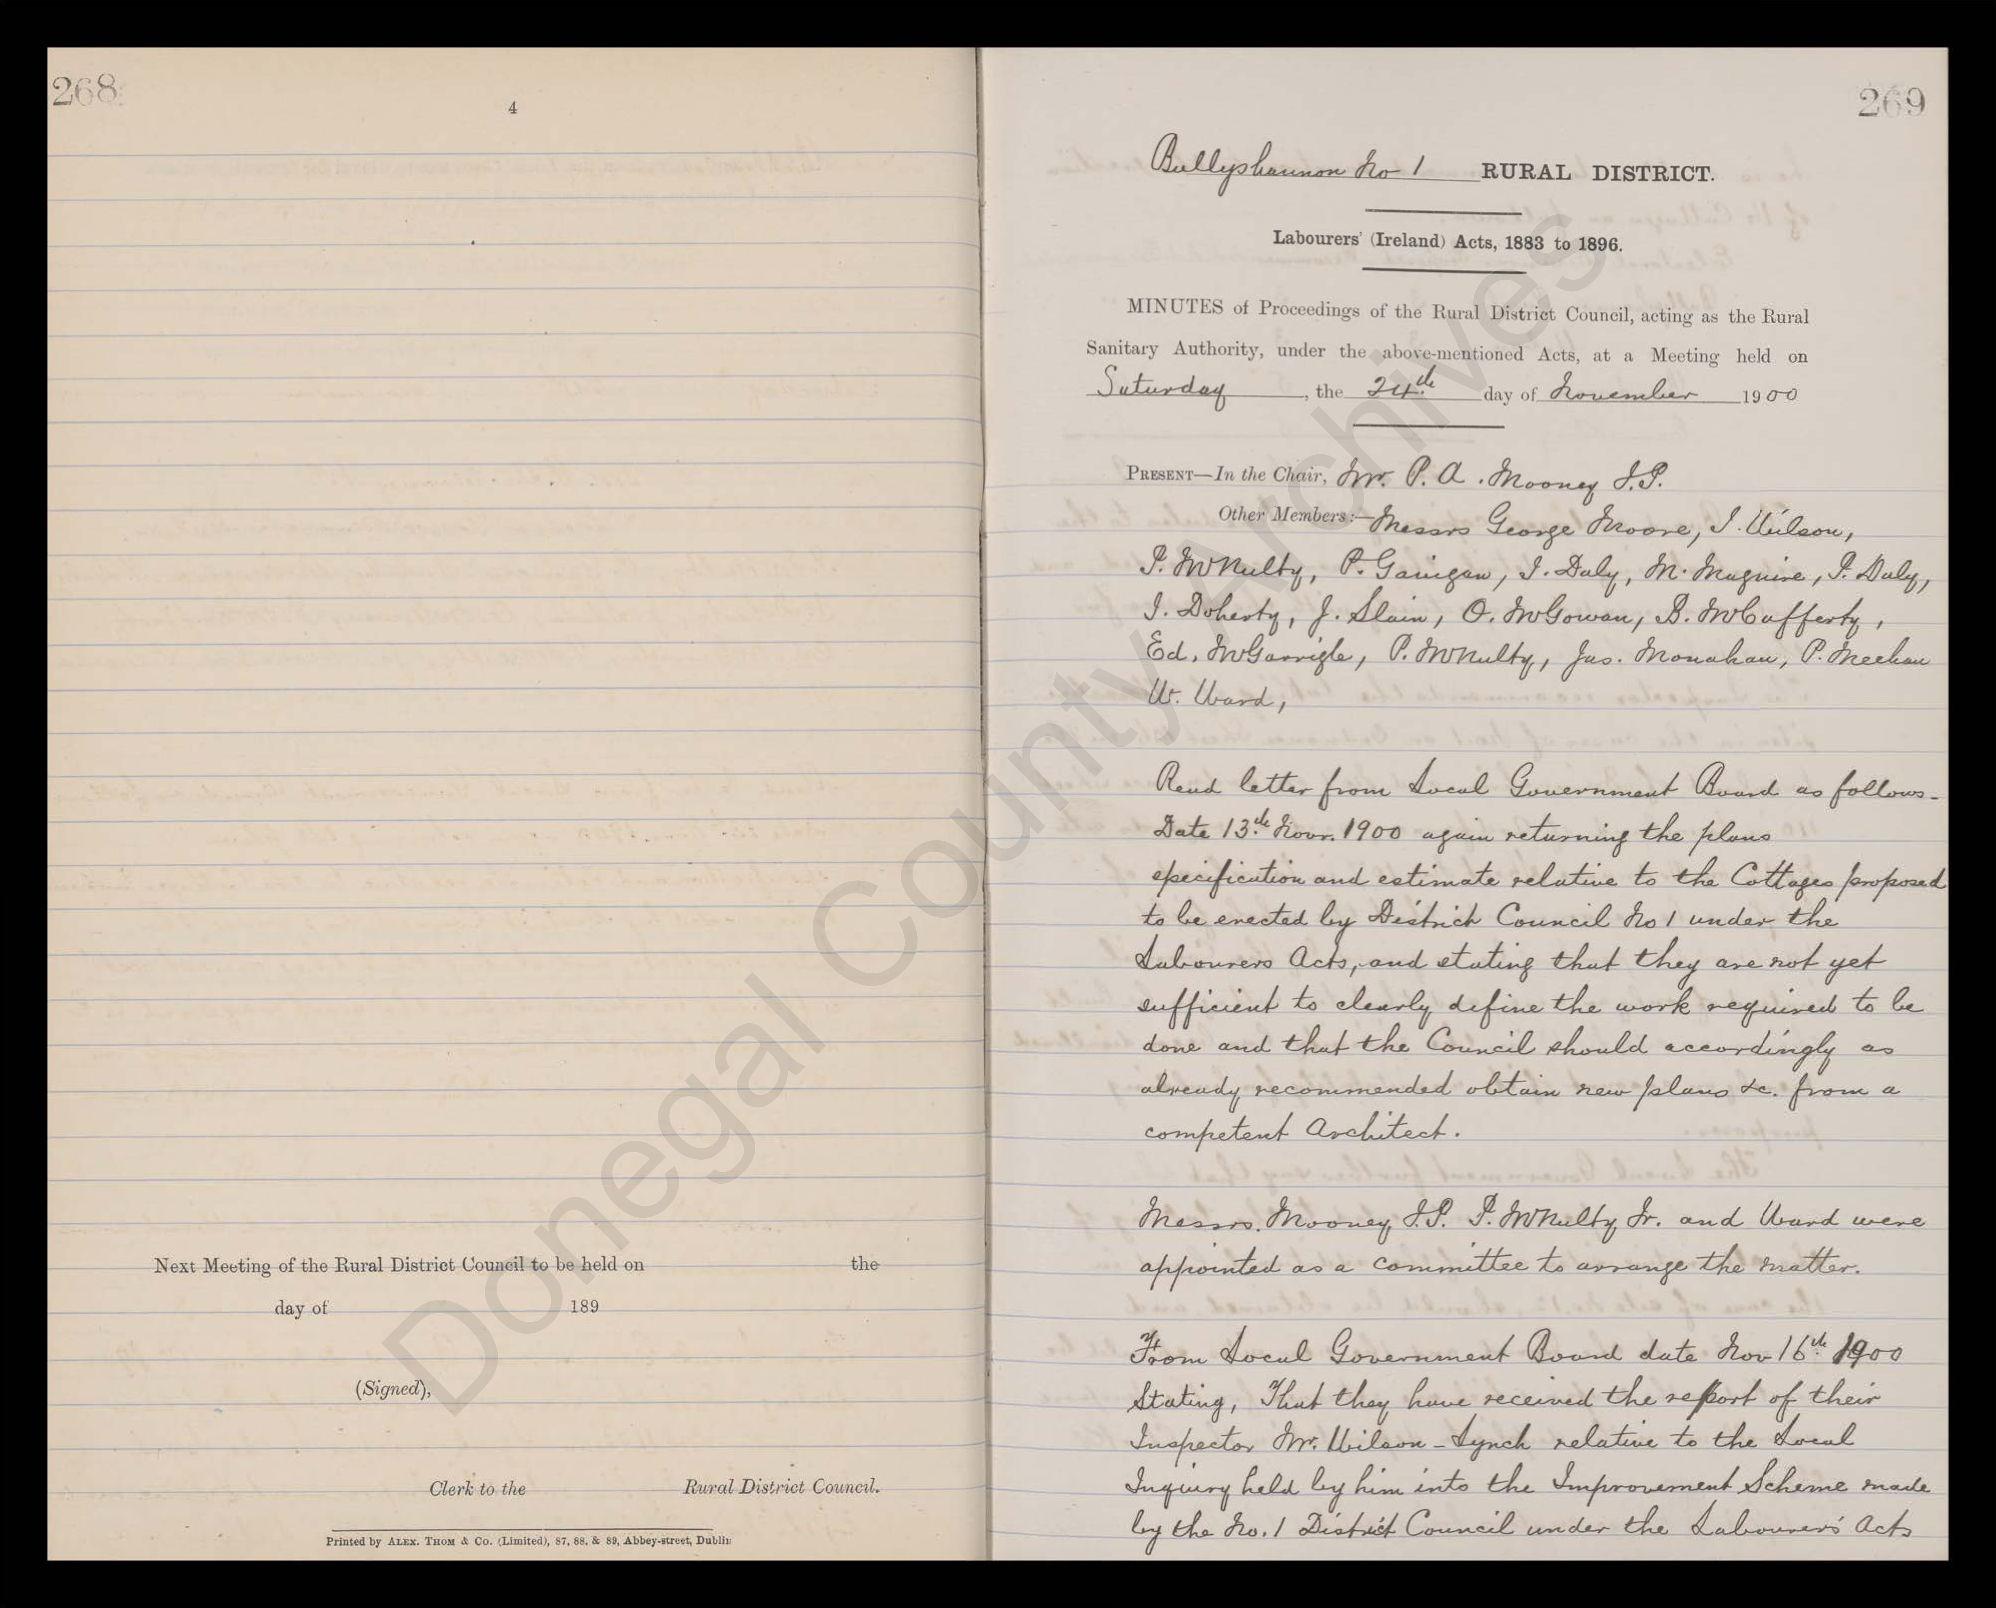 268
4
Next Meeting of the Rural District Council to be held on the
day of 189
(Signed),
Clerk to the Rural District Council.
Printed by ALEX. THOM & Co. (Limited), 87, 88, & 89, Abbey-street, Dublin
269
Ballyshannon No 1 RURAL DISTRICT.
Labourers' (Ireland) Acts, 1883 to 1896.
MINUTES of Proceedings of the Rural District Council, acting as the Rural
Sanitary Authority, under the above-mentioned Acts, at a Meeting held on
Saturday, the 24th day of November 1900
PRESENT—In the Chair, Mr. P. A. Mooney J.P.
Other Members:— Messrs George Moore, J. Wilson,
P. McNulty, P. Gavigan, J. Daly, M. Maguire, P. Daly,
J. Doherty, J. Slain, O. McGowan, B. McCafferty,
Ed. McGarrigle, P. McNulty, Jas. Monahan, P. Meehan
W. Ward,
Read letter from Local Government Board as follows-
Date 13th Novr. 1900 again returning the plans
specification and estimate relative to the Cottages proposed
to be erected by District Council No 1 under the
Labourers Acts, and stating that they are not yet
sufficient to clearly define the work required to be
done and that the Council should accordingly as
already recommended obtain new plans &c. from a
competent Architect.
Messrs. Mooney J.P. P. McNulty Jr. and Ward were
appointed as a committee to arrange the matter.
From Local Government Board date Nov 16th 1900
Stating, That they have received the report of their
Inspector Mr. Wilson-Lynch relative to the Local
Inquiry held by him into the Improvement Scheme made
by the No. 1 District Council under the Labourers' Acts
Donegal County Archives